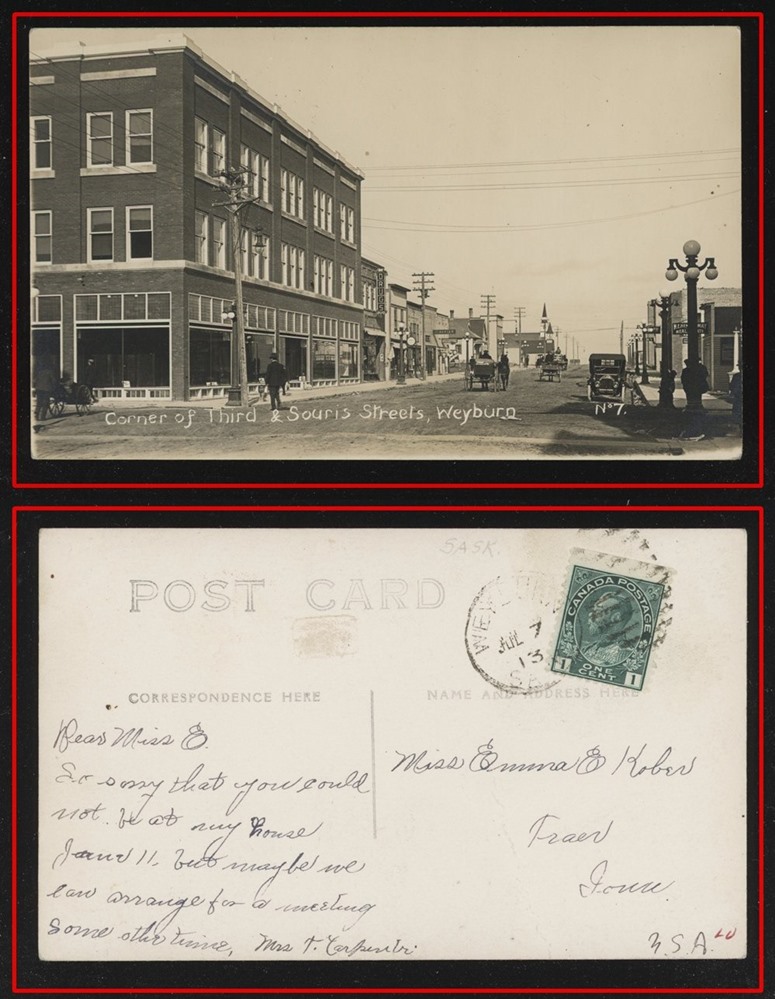 DRUGS
Corner of Third & Souris Streets, Weyburn
No 7.
SASK.
POST CARD
WEYBURN
JUL 7
13
CANADA POSTAGE
1 ONE CENT 1
CORRESPONDENCE HERE
NAME AND ADDRESS HERE
Dear Miss E.
So sorry that you could
not. be at my house
June 11, but maybe we
can arrange for a meeting
Some other time, Mrs T. Carpenter.
Miss Emma E Kober
Traer
Iowa.
U.S.A.